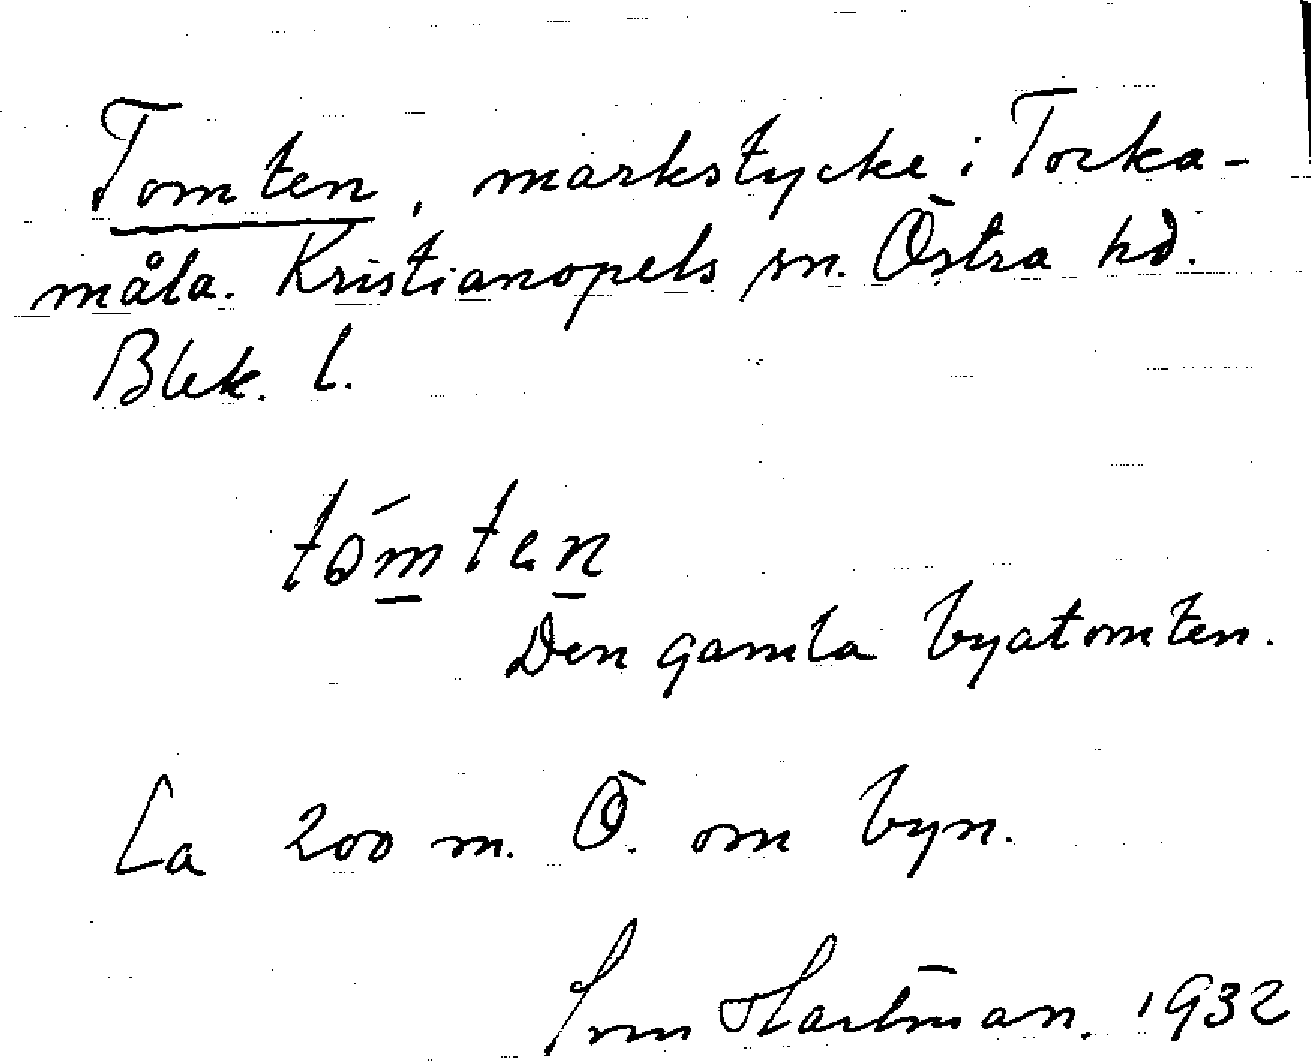 Tomten, markstycke i Torka-
måla. Kristianopels sn. Östra hd.
Blek. l.
tómten
Den gamla byatomten.
Ca 200 m. Ö. om byn.
Hartman. 1932